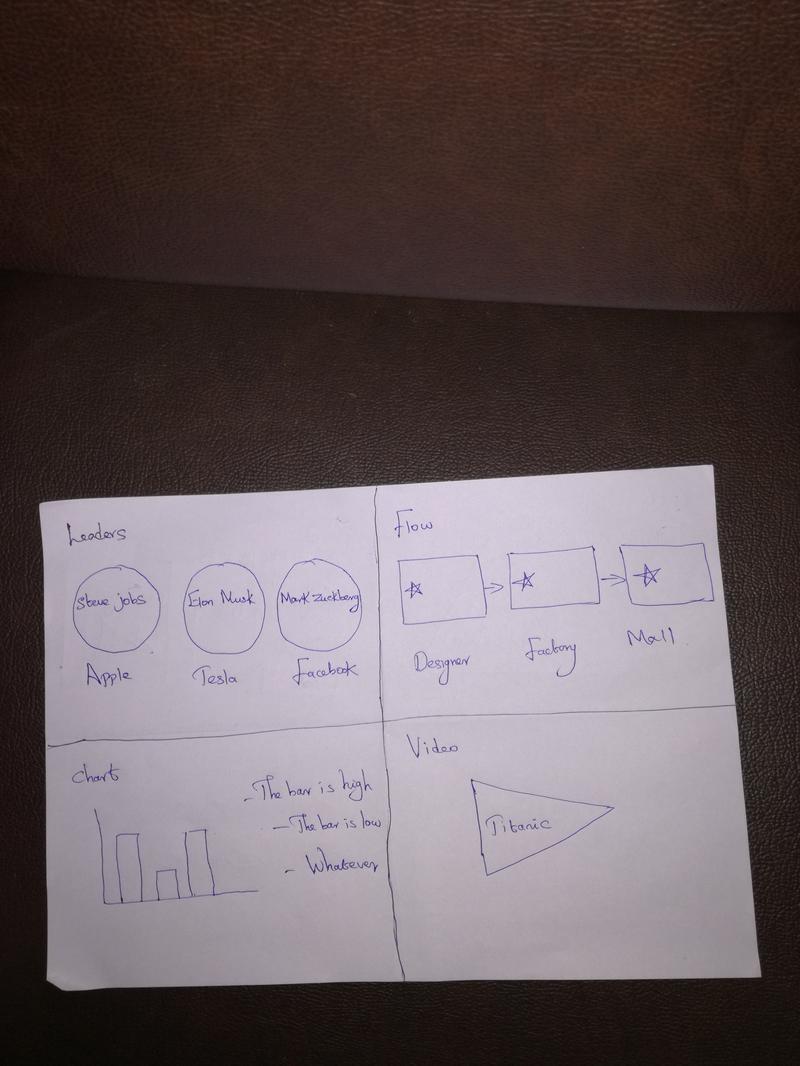 Leaders
Steve jobs
Elon Musk
Mark zuckberg
Apple
Tesla
Facebook
Flow
Designer
Factory
Mall
Chart
- The bar is high
- The bar is low
- Whatever
Video
Titanic